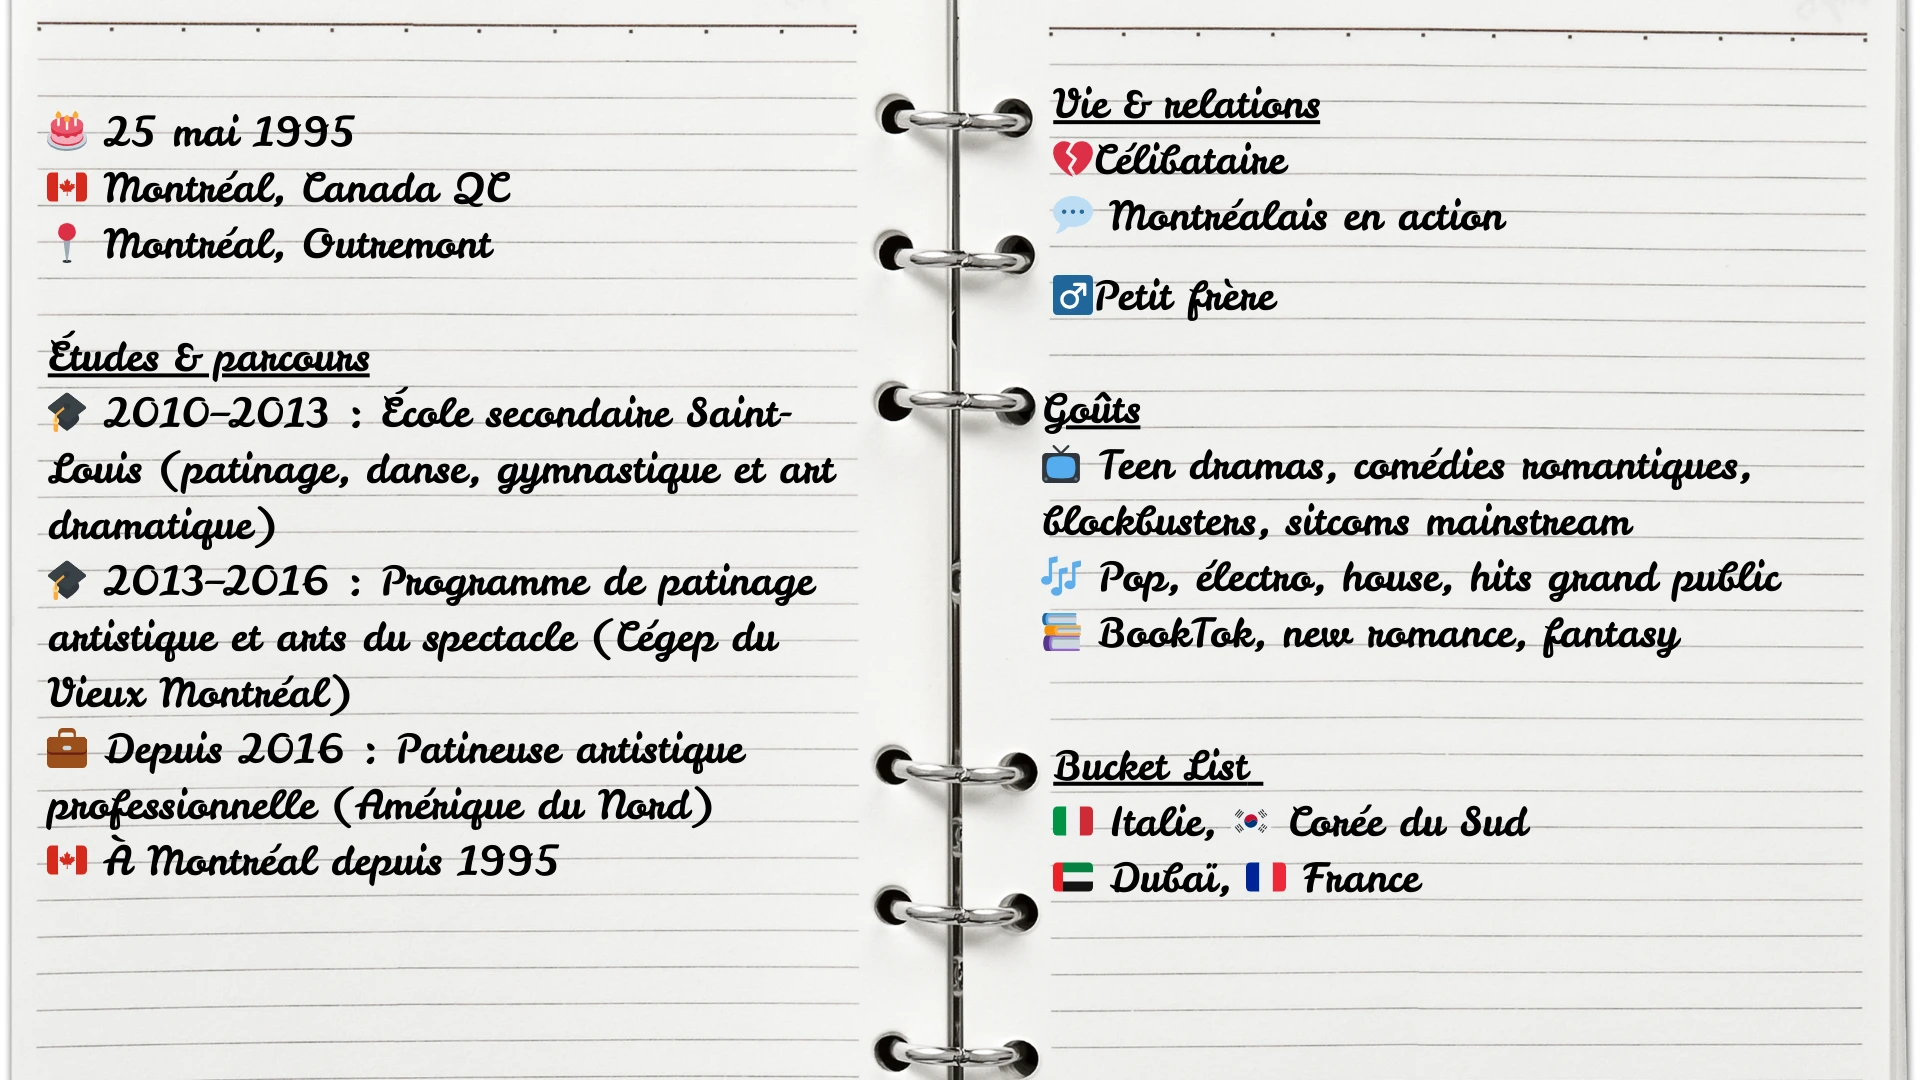 25 mai 1995
Montréal, Canada QC
Montréal, Outremont
Études & parcours
2010–2013 : École secondaire Saint-
Louis (patinage, danse, gymnastique et art
dramatique)
2013–2016 : Programme de patinage
artistique et arts du spectacle (Cégep du
Vieux Montréal)
Depuis 2016 : Patineuse artistique
professionnelle (Amérique du Nord)
À Montréal depuis 1995
Vie & relations
Célibataire
Montréalais en action
Petit frère
Goûts
Teen dramas, comédies romantiques,
blockbusters, sitcoms mainstream
Pop, électro, house, hits grand public
BookTok, new romance, fantasy
Bucket List
Italie, Corée du Sud
Dubaï, France